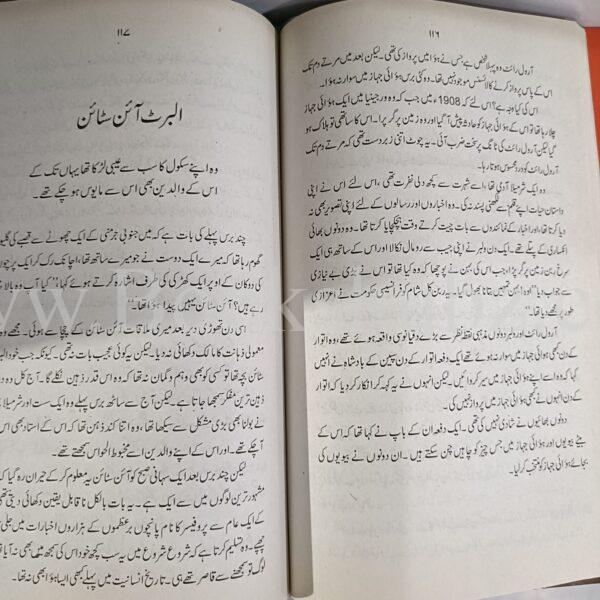 ۱۱۶
آرول رائٹ وہ پہلا شخص ہے جس نے ہوا میں پرواز کی تھی۔ لیکن بعد میں مرتے دم تک
اس کے پاس پرواز کرنے کا لائسنس موجود نہیں تھا۔ وہ کئی برس ہوائی جہاز میں سوار نہ ہوا۔
اس کی کیا وجہ ہے؟ اس لئے کہ 1908ء میں جب کہ وہ ورجینیا میں ایک ہوائی جہاز
چلا رہا تھا تو اس کے ہوائی جہاز کو حادثہ پیش آگیا اور وہ زمین پر گر پڑا۔ اس کا ساتھی تو ہلاک ہو
گیا لیکن آرول رائٹ کی ٹانگ پر سخت ضرب آئی۔ یہ چوٹ اتنی زبردست تھی کہ مرتے دم تک
آرول رائٹ کو درد محسوس ہوتا رہا۔
وہ ایک شرمیلا آدمی تھا، اسے شہرت سے کچھ دلی نفرت تھی، اس لئے اس نے اپنی
داستان حیات اپنے قلم سے لکھنی پسند نہ کی۔ وہ اخباروں اور رسالوں کے لئے اپنی تصویر بھی نہ
کھنچواتا تھا، اور اخبار کے نمائندوں سے بات چیت کرتے وقت ہچکچایا کرتا تھا۔ وہ دونوں بھائی
انکساری کے پتلے تھے۔ ایک دن ولبر نے اپنی جیب سے رومال نکالا اور اس کے ساتھ ہی ایک
سرخ ربن زمین پر گر پڑا، جب اس کی بہن نے پوچھا کہ وہ کیا تھا، تو اس نے بڑی بے نیازی
سے جواب دیا "اوہ! بہن تمہیں بتانا بھول گیا۔ یہ ربن کل شام کو فرانسیسی حکومت نے اعزازی
طور مجھے دیا تھا۔"
آرول رائٹ اور ولبر دونوں مذہبی نقطہ نظر سے بڑے دقیانوسی واقعہ ہوئے تھے۔ وہ اتوار
کے دن کبھی ہوائی جہاز میں سوار نہ ہوئے تھے۔ ایک دفعہ اتوار کے دن سپین کے بادشاہ نے انہیں
کہا کہ وہ اسے اپنے ہوائی جہاز میں سیر کروائیں۔ لیکن انہوں نے یہ کہہ کر انکار کر دیا کہ اتوار
کے دن انہوں نے کبھی ہوائی جہاز میں پرواز نہیں کی۔
دونوں بھائیوں نے شادی نہیں کی تھی۔ ایک دفعہ ان کے باپ نے کہا تھا کہ اس کے
بیٹے بیویوں اور ہوائی جہاز میں جس چیز کو چاہیں چن سکتے ہیں۔ ان دونوں نے بیویوں کی
بجائے ہوائی جہاز کو منتخب کر لیا۔
۱۱۷
البرٹ آئن سٹائن
وہ اپنے سکول کا سب سے غبی لڑکا تھا یہاں تک کے
اس کے والدین بھی اس سے مایوس ہو چکے تھے۔
چند برس پہلے کی بات ہے کہ میں جنوبی جرمنی کے ایک چھوٹے سے قصبے کی
گھوم رہا تھا کہ میرے ایک دوست نے جو میرے ساتھ تھا، اچانک رک کر ایک
کی دوکان کے اوپر ایک کھڑکی کی طرف اشارہ کرتے ہوئے کہا، "کیا آپ وہ
رہے ہیں؟ آئن سٹائن یہیں پیدا ہوا تھا۔"
اسی دن تھوڑی دیر بعد میری ملاقات آئن سٹائن کے چچا سے ہوئی۔ مجھے وہ
معمولی ذہانت کا مالک دکھائی دیا۔ لیکن یہ کوئی عجیب بات نہ تھی۔ کیونکہ جب خود البرٹ
سٹائن بچہ تھا تو کسی کو بھی وہم و گمان نہ تھا کہ وہ اس قدر ذہین نکلے گا۔ آج کل وہ
ذہین ترین مفکر سمجھا جاتا ہے۔ لیکن آج سے ساٹھ برس پہلے وہ ایک سست اور شرمیلا
نے بولنا بھی بڑی مشکل سے سیکھا تھا، وہ اتنا کند ذہن تھا کہ اس کے استاد بھی اس
آچکے تھے۔ اور اس کے اپنے والدین اسے مخبوط الحواس سمجھتے تھے۔
لیکن چند برس بعد ایک سہانی صبح کو آئن سٹائن یہ معلوم کر کے حیران رہ گیا کہ
مشہور ترین لوگوں میں سے ایک ہے۔ یہ بات بالکل نا قابل یقین دکھائی دیتی تھی
کے ایک عام سے پروفیسر کا نام پانچوں براعظموں کے ہزاروں اخبارات میں جلی
چھپے۔ وہ تسلیم کرتا ہے کہ شروع شروع میں یہ سب کچھ خود اس کی سمجھ میں بھی نہ آیا
لوگ تو سمجھنے سے قاصر تھے ہی۔ تاریخ انسانیت میں پہلے کبھی ایسا ہوا بھی نہ تھا۔